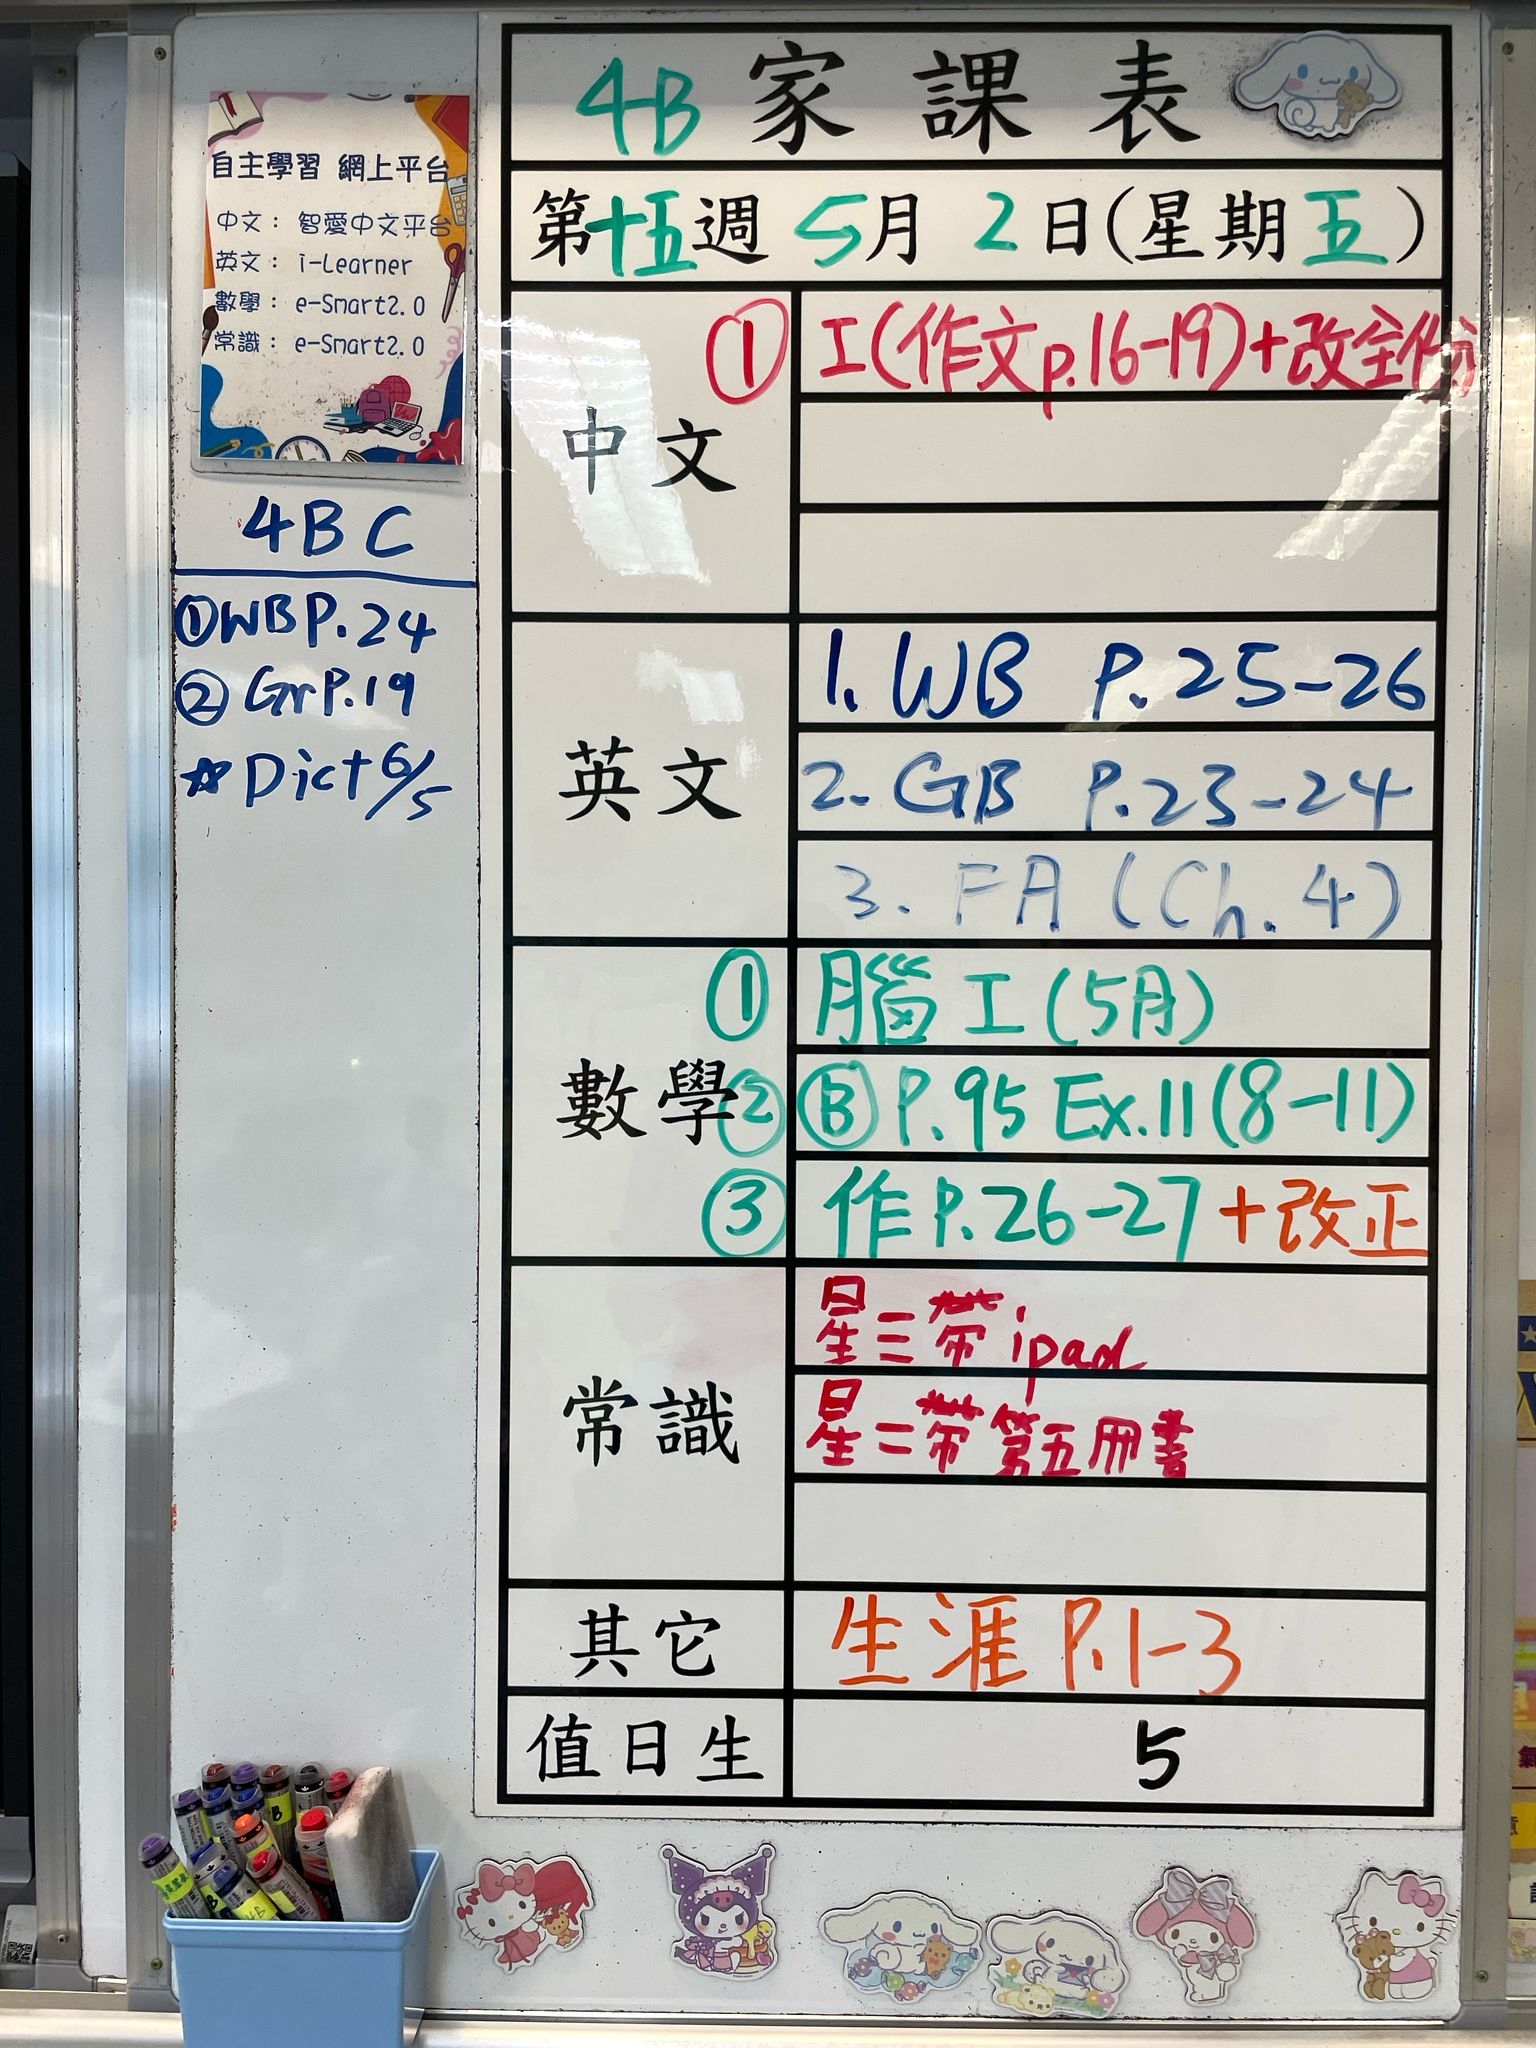 自主學習 網上平台
中文： 智愛中文平台
英文： i-Learner
數學： e-Smart2.0
常識： e-Smart2.0
4BC
①WB P.24
②Gr P.19
☆Dict 6/5
4B 家課表
第十五週 5月 2日(星期五)
中文
① 工(作文p.16-19)+改全份
英文
1. WB P.25-26
2. GB P.23-24
3. FA (Ch.4)
數學
① 腦工(5月)
② Ⓑ P.95 Ex.11(8-11)
③ 作P.26-27+改正
常識
星三帶ipad
星二帶第五冊書
其它
生涯 P.1-3
值日生
5